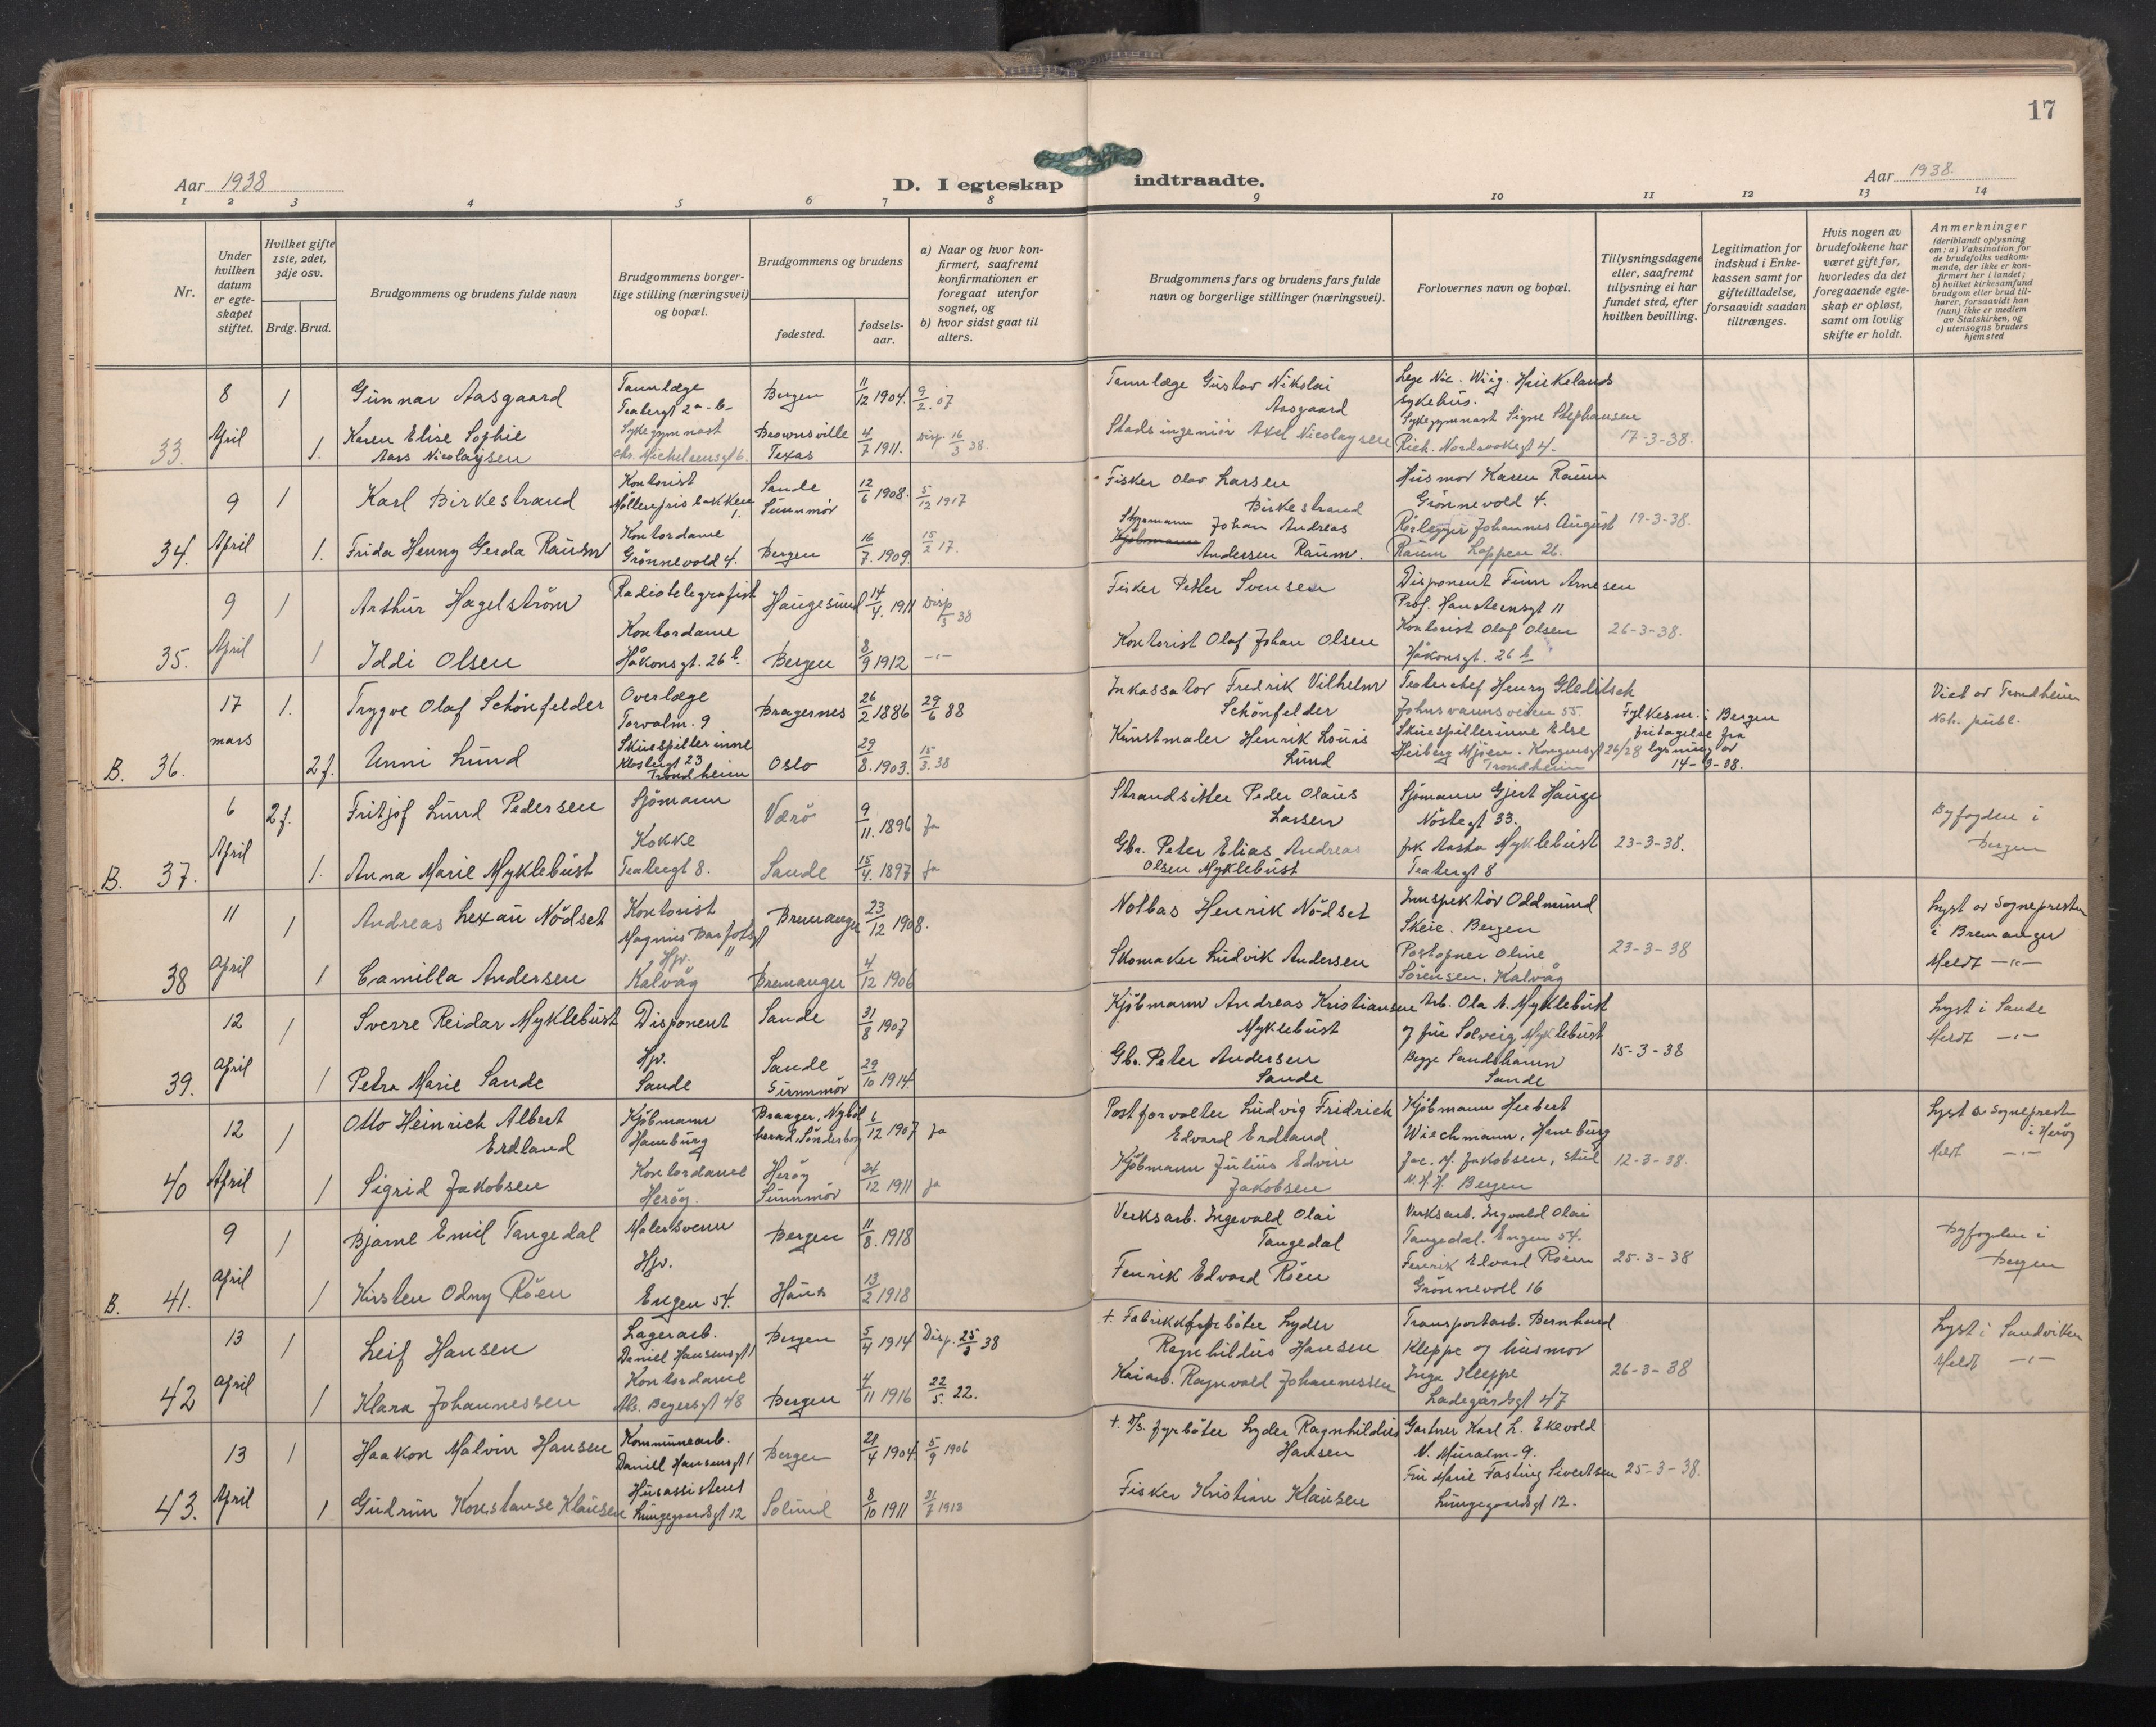 17
Aar 1938
D. I egteskap indtraadte.
Aar 1938.
1 2 3 4 5 6 7 8 9 10 11 12 13 14
Nr.
Under hvilken datum er egteskapet stiftet.
Hvilket gifte 1ste, 2det, 3dje osv.
Brdg. Brud.
Brudgommens og brudens fulde navn
Brudgommens borgerlige stilling (næringsvei) og bopæl.
Brudgommens og brudens
fødested.
fødselsaar.
a) Naar og hvor konfirmert, saafremt konfirmationen er foregaat utenfor sognet, og
b) hvor sidst gaat til alters.
Brudgommens fars og brudens fars fulde navn og borgerlige stillinger (næringsvei).
Forlovernes navn og bopæl.
Tillysningsdagene eller, saafremt tillysning ei har fundet sted, efter hvilken bevilling.
Legitimation for indskud i Enkekassen samt for giftetilladelse, forsaavidt saadan tiltrænges.
Hvis nogen av brudefolkene har været gift før, hvorledes da det foregaaende egteskap er opløst, samt om lovlig skifte er holdt.
Anmerkninger
(deriblandt oplysning om: a) Vaksination for de brudefolks vedkommende, der ikke er konfirmert her i landet;
b) hvilket kirkesamfund brudgom eller brud tilhører, forsaavidt han (hun) ikke er medlem av Statskirken, og
c) utensogns bruders hjemsted
8 1 Gunnar Aasgaard Tannlæge Teatergt 2a-b- Bergen 11/12 1904. 9/2.07 Tannlæge Gustav Nikolai Aasgaard Lege Nic. Wiig. Haukelands sykehus.
33. April 1. Karen Elise Sophie Aars Nicolaysen Sykegymnast Chr. Michelsensgt 6. Brownsville Texas 4/7 1911. Disp 16/3 38. Stadsingeniør Axel Nicolaysen Sykegymnast Signe Stephansen Rich. Nordraaksgt 4. 17-3-38.
9 1 Karl Birkestrand Kontorist Møllerprisbakken 1. Sande Sunnmør 12/6 1908. 5/12 1917 Fisker Olav Larsen Birkestrand Husmor Karen Raum Grønnevold 4.
34. April 1. Frida Henny Gerda Raum Kontordame Grønnevold 4. Bergen 16/7. 1909. 15/2 17. Styrmann Johan Andreas Andersen Raum. Rørlegger Johannes August Raum Loppen 26. 19-3-38.
9 1 Arthur Hagelström Radiotelegrafist Haugesund 14/4. 1911 Disp /3 38 Fisker Petter Svensen Disponent Finn Arnesen Prof. Hansteensgt 11
35. April 1 Iddi Olsen Kontordame Håkonsgt. 26 b. Bergen 8/9 1912 -"- Kontorist Olaf Johan Olsen Kontorist Olaf Olsen Håkonsgt. 26 b 26-3-38.
17 1. Trygve Olaf Schönfelder Overlæge Torvalm. 9 Bragernes 26/2 1886 29/6 88 Inkassator Fredrik Vilhelm Schönfelder Teaterchef Henry Gleditsch Johnsvannsveien 55. Fylkesm. i Bergen Viet av Trondheim Not. publ.
B. 36. mars 2 f. Unni Lund Skuespillerinne Klostergt 23 Trondheim Oslo 29/8. 1903. 15/3. 38 Kunstmaler Henrik Louis Lund Skuespillerinne Else Heiberg Mjöen. Kongensgt 26/28 Trondheim fritagelse fra lysning av 14-3-38.
6 2 f. Fritjof Lund Pedersen Sjømann Værø 9/11. 1896 Ja Strandsitter Peder Olaus Larsen Sjømann Gjert Hauge Nøstegt 33. Byfogden i Bergen
B. 37. April 1. Anna Marie Myklebust Kokke Teatergt 8. Sande 15/4. 1897 Ja Gbr. Peter Elias Andreas Olsen Myklebust frk Aasta Myklebust Teatergt 8 23-3-38.
11 1 Andreas Lexau Nødset Kontorist Magnus Barfotsgt 11 Bremanger 23/12 1908. Notbas Henrik Nødset Innspektør Oddmund Skeie. Bergen Lyst av Sogneprest i Bremanger
38 April 1 Camilla Andersen Hjv. Kalvåg Bremanger 4/12 1906 Skomaker Ludvik Andersen Postopner Oline Sørensen. Kalvåg 23-3-38 Meldt -"-
12 1 Sverre Reidar Myklebust Disponent Sande 31/8 1907 Kjøbmann Andreas Kristiansen Myklebust Arb. Ola A. Myklebust Lyst i Sande
39. April 1 Petra Marie Sande Hjv. Sande Sande Sunnmör 29/10 1914 Gbr. Peter Andersen Sande og fru Solveig Myklebust Begge Sandshamn Sande 15-3-38 Meldt -"-
12 1 Otto Heinrich Albert Erdland Kjøbmann Hamburg 6/12 1907 Ja Postforvalter Ludvig Fridrich Edvard Erdland Kjøbmann Herbert Wiechmann, Hamburg Lyst av Sogneprest i Herøy
40 April 1 Sigrid Jakobsen Kontordame Herøy. Herøy Sunnmör 24/12 1911 Ja Kjøbmann Julius Edvin Jakobsen Jac. M. Jakobsen, stud N.H.H. Bergen 12-3-38. Meldt -"-
9 1 Bjarne Emil Tangedal Malersvenn Bergen 11/8. 1918 Verksarb. Ingevald Olai Tangedal Verksarb. Ingvald Olai Tangedal. Engen 54. Byfogden i Bergen
B. 41. April 1 Kirsten Odny Røen Hjv. Engen 54. Haus 13/2 1918 Fenrik Edvard Røen Fenrik Edvard Røen Grønnevoll 16 25-3-38
13 1 Leif Hansen Lagerarb. Daniel Hansensgt 1 Bergen 5/4 1914 Disp. 25/ 38 + Fabrikkfyrbøter Lyder Ragnhildius Hansen Transportarb. Bernhard Kleppe og husmor Lyst i Sandviken
42 April 1 Klara Johannessen Kontordame Abs. Beyersgt 48 Bergen 4/11 1916 22/5. 22. Kaiarb. Ragnvald Johannessen Inga Kleppe Ladegårdsgt 47 26-3-38 Meldt -"-
13 1 Haakon Malvin Hansen Kommunearb. Daniel Hansensgt 1 Bergen 21/4 1904. 5/9 1906 + fyrbøter Lyder Ragnhildius Hansen Gartner Karl L. Ekevold N. Muralm-9.
43. April 1 Gudrun Konstanse Klausen Husassistent Lungegaardsgt 12 Solund 8/10 1911 31/7 1913 Fisker Kristian Klausen Fru Marie Fasting Sivertsen Lungegaardsgt 12. 25-3-38.